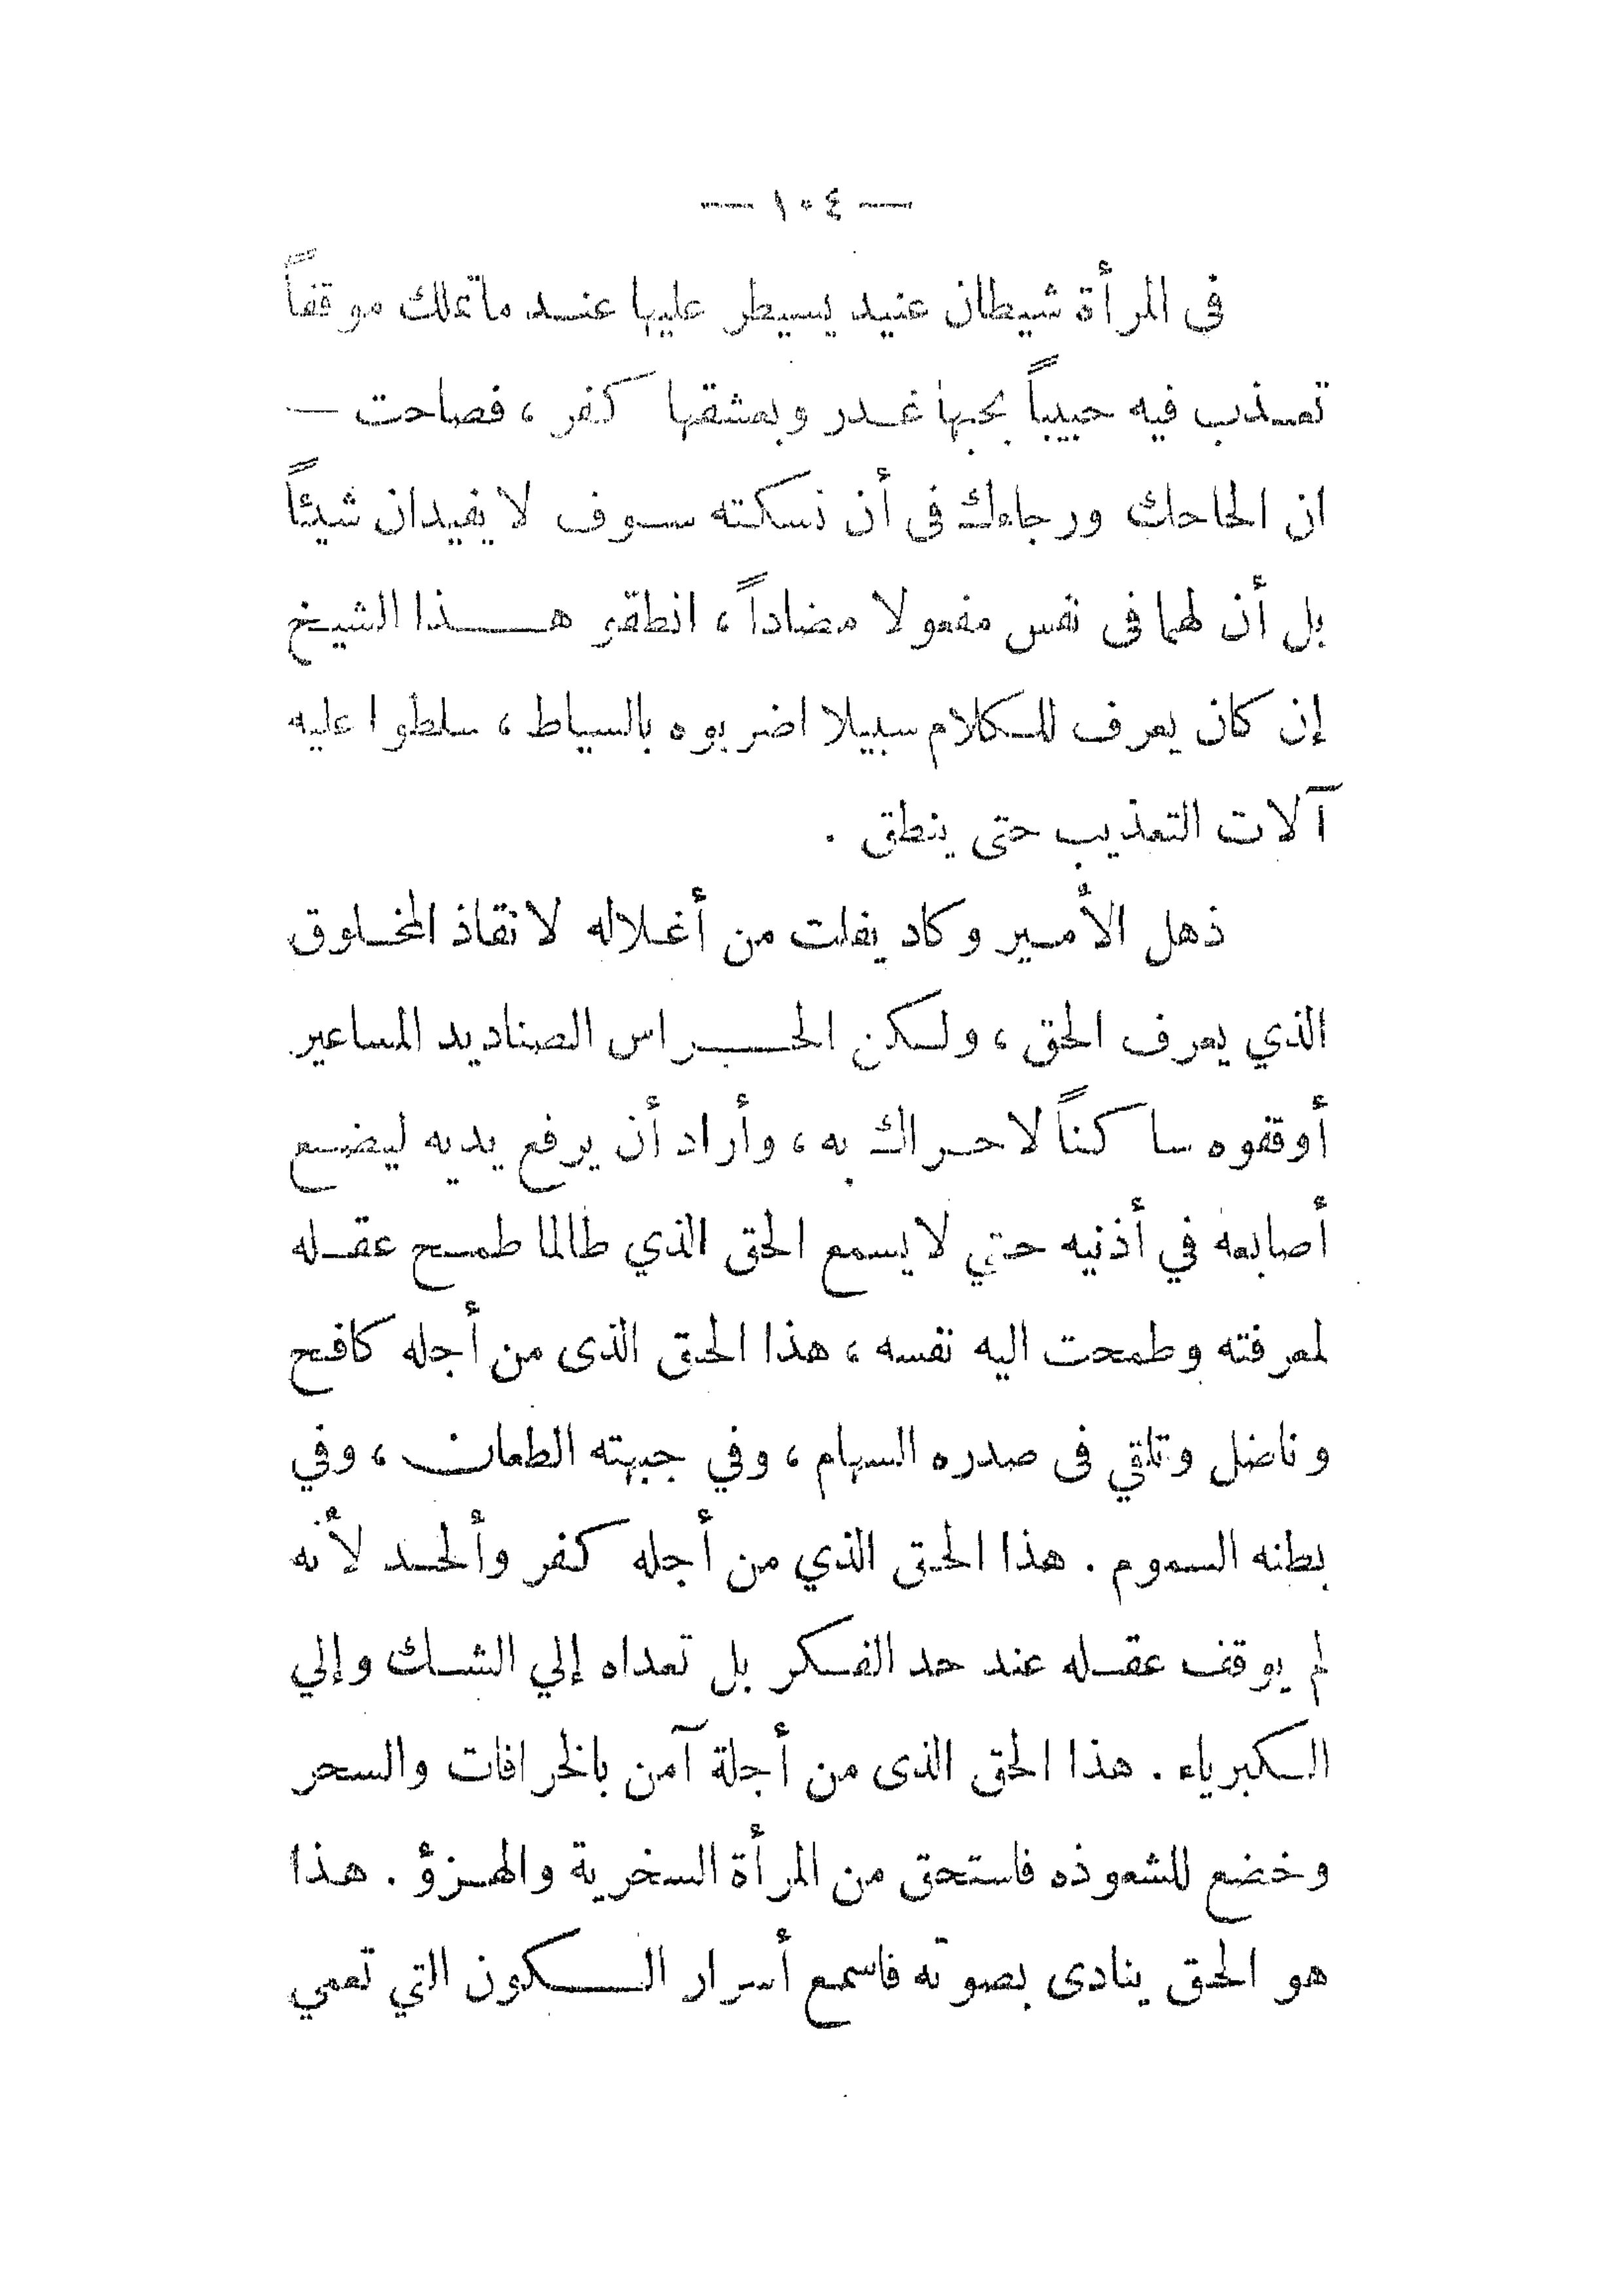 — ١٠٤ —
فى المرأة شيطان عنيد يسيطر عليها عند ماتملك موقفاً
تعذب فيه حبيباً بحبها غدر وبعشقها كفر ، فصاحت —
ان الحاحك ورجاءك فى أن نسكته سوف لا يفيدان شيئاً
بل أن لهما فى نفس مفعولا مضاداً ، انطقو هذا الشيخ
إن كان يعرف للكلام سبيلا اضربوه بالسياط ، سلطوا عليه
آلات التعذيب حتى ينطق .
ذهل الأمير وكاد يفلت من أغلاله لانقاذ المخلوق
الذي يعرف الحق ، ولكن الحراس الصناديد المساعير
أوقفوه ساكناً لاحراك به ، وأراد أن يرفع يديه ليضع
أصابعه في أذنيه حتي لا يسمع الحق الذي طالما طمح عقله
لمعرفته وطمحت اليه نفسه ، هذا الحق الذى من أجله كافح
وناضل وتلقي فى صدره السهام ، وفي جبهته الطعان ، وفي
بطنه السموم . هذا الحق الذي من أجله كفر وألحد لأنه
لم يوقف عقله عند حد الفكر بل تعداه إلي الشك وإلي
الكبرياء . هذا الحق الذى من أجلة آمن بالخرافات والسحر
وخضع للشعوذه فاستحق من المرأة السخرية والهزؤ . هذا
هو الحق ينادى بصوته فاسمع أسرار الكون التي تعمي